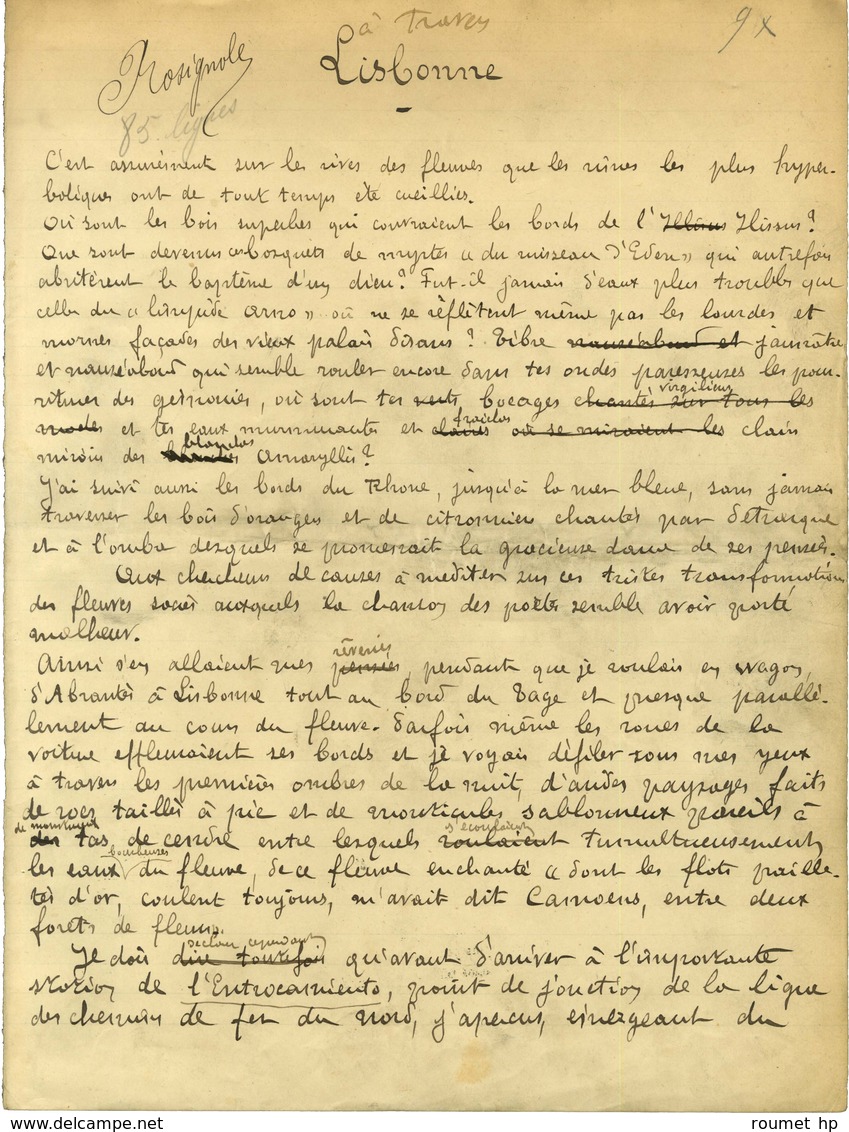 à travers
9 x
Rosignol
Lisbonne
85 lignes
C'est assurément sur les rives des fleuves que les rimes les plus hyper-
boliques ont de tout temps été cueillies.
Où sont les bois superbes qui couvraient les bords de l'Illisus Ilissus ?
Que sont devenus ces bosquets de myrtes « du ruisseau d'Eden » qui autrefois
abritèrent le baptême d'un dieu ? Fut-il jamais d'eaux plus troubles que
celles du « limpide Arno » où ne se reflètent même pas les lourdes et
mornes façades des vieux palais pisans ? Tibre nauséabond et jaunâtre
et nauséabond qui semble rouler encore dans tes ondes paresseuses les pour-
virgiliens
ritures des gémonies, où sont tes verts bocages chantés sur tous les
fraîches
modes et tes eaux murmurantes et claires où se miraient les clairs
blanches
miroirs des Amaryllis ?
J'ai suivi aussi les bords du Rhône, jusqu'à la mer bleue, sans jamais
traverser les bois d'oranges et de citronniers chantés par Pétrarque
et à l'ombre desquels se promenait la gracieuse dame de ses pensées.
Aux chercheurs de causes à méditer sur ces tristes transformations
des fleuves sacrés auxquels la chanson des poètes semble avoir porté
malheur.
rêveries
Ainsi s'en allaient mes pensées, pendant que je roulais en wagon,
d'Abrantès à Lisbonne tout au bord du Tage et presque parallè-
lement au cours du fleuve. Parfois même les roues de la
voiture effleuraient ses bords et je voyais défiler sous mes yeux
à travers les premières ombres de la nuit, d'arides paysages faits
de rocs taillés à pic et de monticules sablonneux pareils à
de monstrueux s'écoulaient
des tas de cendre entre lesquels roulaient tumultueusement
bourbeuses
les eaux du fleuve, de ce fleuve enchanté « dont les flots paille-
tés d'or, coulent toujours, m'avait dit Camoens, entre deux
forêts de fleurs.
déclarer cependant
Je dois dire toutefois qu'avant d'arriver à l'importante
station de l'Entrocamiento, point de jonction de la ligne
des chemins de fer du nord, j'aperçus, émergeant du
roumet hp